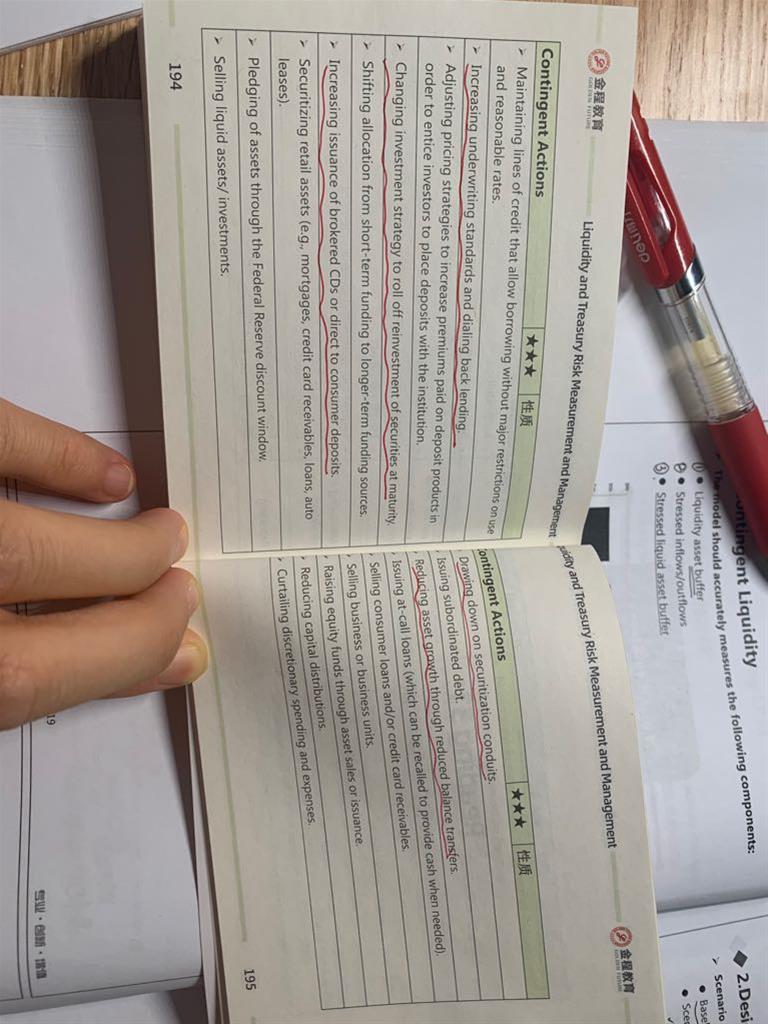 金程教育
GOLDEN FUTURE
Liquidity and Treasury Risk Measurement and Management
Contingent Actions ★★★ 性质
➢ Maintaining lines of credit that allow borrowing without major restrictions on use
and reasonable rates.
➢ Increasing underwriting standards and dialing back lending.
➢ Adjusting pricing strategies to increase premiums paid on deposit products in
order to entice investors to place deposits with the institution.
➢ Changing investment strategy to roll off reinvestment of securities at maturity.
➢ Shifting allocation from short-term funding to longer-term funding sources.
➢ Increasing issuance of brokered CDs or direct to consumer deposits.
➢ Securitizing retail assets (e.g., mortgages, credit card receivables, loans, auto
leases).
➢ Pledging of assets through the Federal Reserve discount window.
➢ Selling liquid assets/ investments.
194
quidity and Treasury Risk Measurement and Management
金程教育
GOLDEN FUTURE
ontingent Actions ★★★ 性质
Drawing down on securitization conduits.
Issuing subordinated debt.
Reducing asset growth through reduced balance transfers.
Issuing at-call loans (which can be recalled to provide cash when needed).
➢ Selling consumer loans and/or credit card receivables.
➢ Selling business or business units.
➢ Raising equity funds through asset sales or issuance.
➢ Reducing capital distributions.
➢ Curtailing discretionary spending and expenses.
195
deli
ontingent Liquidity
The model should accurately measures the following components:
① • Liquidity asset buffer
② • Stressed inflows/outflows
③ • Stressed liquid asset buffer
2.Desi
➢ Scenario
• Base
• Sce
19
专业·创新·增值